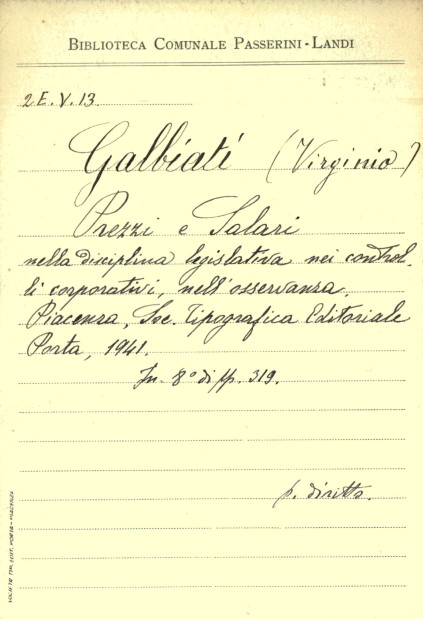 BIBLIOTECA COMUNALE PASSERINI-LANDI
2 E. V. 13.
Galbiati (Virginio)
Prezzi e Salari
nella disciplina legislativa nei control-
li corporativi, nell'osservanza.
Piacenza, Soc. Tipografica Editoriale
Porta, 1941.
In. 8º di pp. 319.
p. diritto.